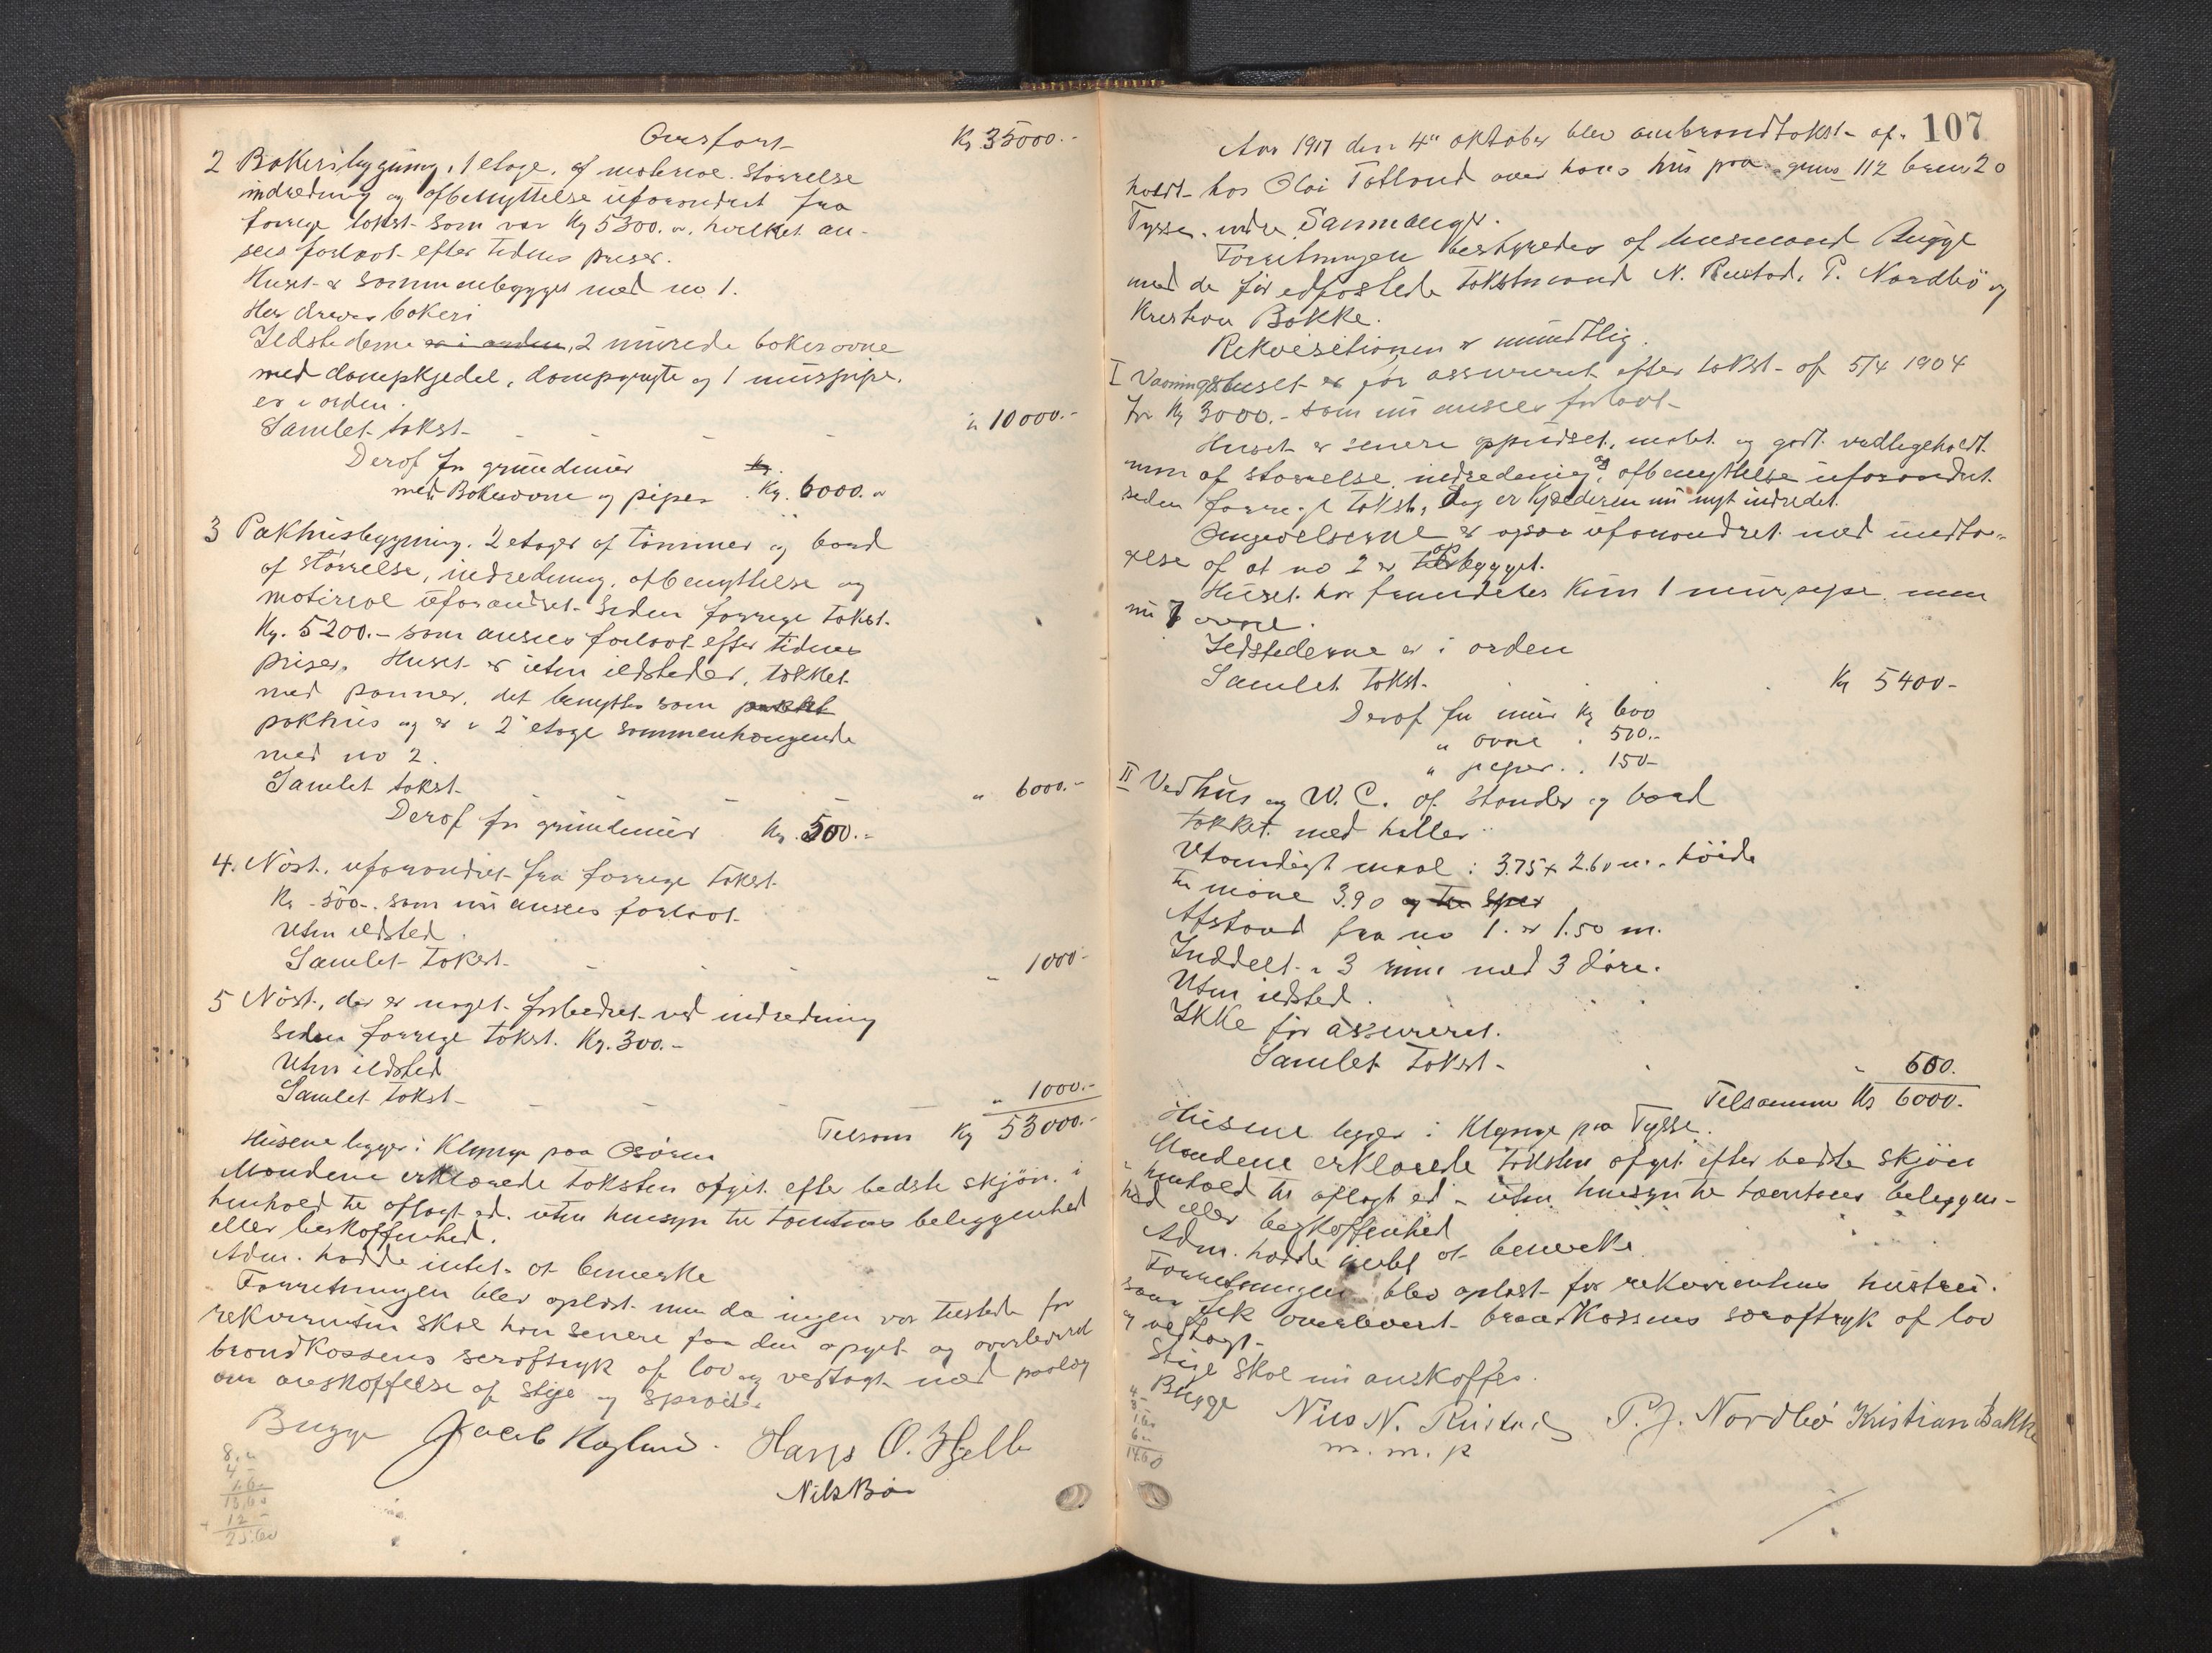 Overført Kr 35000.-
2 Bakeribygning, 1 etage, af materiale. Størrelse
indredning og afbenyttelse uforandret fra
forrige takst som var Kr 5300.-, hvilket an-
sees forlavt efter tidens priser.
Huset er sammenbygget med no 1.
Her drives bakeri
Ildstederne er i orden, 2 murede bakerovne
med dampkjedel, dampgryte og 1 murpipe,
er i orden.
Samlet takst - - - - " 10000.-
Deraf for grundmur Kr.
med Bakerovne og piper. Kr. 6000.-
3 Pakhusbygning. 2 etager af tømmer og bord
af størrelse, indredning, afbenyttelse og
materiale uforandret siden forrige takst
Kr. 5200.- som ansees forlavt efter tidens
priser. Huset er uten ildsteder, tækket
med panner, det benyttes som pakket
pakhus og er i 2 etage sammenhængende
med no 2.
Samlet takst - - - " 6000.-
Deraf for grundmur Kr. 500.-
4. Nøst, uforandret fra forrige takst
Kr 500.- som nu ansees forlavt.
Uten ildsted.
Samlet takst - - - - " 1000.-
5 Nøst, der er noget forbedret ved indredning
siden forrige takst. Kr. 300.-
Uten ildsted
Samlet takst - - - - " 1000.-
Tilsam Kr 53000.-
Husene ligger i Klynge paa Osøren
Mændene erklærede taksten afgit efter bedste skjøn i
henhold til aflagt ed. uten hensyn til tomtens beliggenhed
eller beskaffenhed.
Adm. hadde intet at bemerke
Forretningen blev oplæst men da ingen var tilstede for
rekvirenten skal han senere faa den opgit og overlevert
brandkassens særaftryk af lov og vedtægt med paalæg
om anskaffelse af Stige og Sprøite.
Bugge Jacob Haglund. Hans O. Hjelle
Nils Bøe
8.-
4 -
1.60
13.60
12 -
25.60
107
Aar 1917 den 4de oktober blev ombrandtakst af-
holdt hos Olai Totland over hans hus paa gnrs 112 brnrs 20
Tysse. indre Samnanger.
Forretningen bestyredes af lensmand Bugge
med de før edfæstede takstmænd N. Rustad, P. Nordbø og
Kristian Bakke.
Rekvisitionen er mundtlig.
I Vaaningshuset er før assureret efter takst af 5/4 1904
for Kr 3000.- som nu ansees forlavt-
Huset er senere oppudset, malet og godt vedligeholdt
men af størrelse, indredning og afbenyttelse uforandret
siden forrige takst, dog er Kjælderen nu nyt indredet.
Omgivelserne er ogsaa uforandret med undta-
gelse af at no 2 er opbygget.
Huset har fremdeles kun 1 murpipe men
nu 7 ovne.
Ildstederne er i orden
Samlet takst. . . Kr 5400-
Deraf for mur Kr 600
" ovne . 500.-
" piper . . 150-
II Vedhus og W. C. af Stander og bord
tækket med heller
Utvendigt maal: 3.75 x 2.60 m. høide
til møne 3.90 og til Sper
Afstand fra no 1. er 1.50 m.
Inddelt i 3 rum med 3 døre.
Uten ildsted.
Ikke før assureret.
Samlet takst - . " 600.
Tilsammen Kr 6000.-
Husene ligger i Klynge paa Tysse.
Mændene erklærede taksten afgit efter bedste skjøn
i henhold til aflagt ed - uten hensyn til tomtens beliggen-
hed eller beskaffenhed
Adm. hadde intet at bemerke.
Forretningen blev oplæst for rekvirentens hustru.
som fik overlevert brandkassens særaftryk af lov
og vedtægt-
Stige skal nu anskaffes.
Bugge Nils N. Rustad P. J. Nordbø Kristian Bakke
m. m. p
4 -
3 -
1.60
6 -
14.60